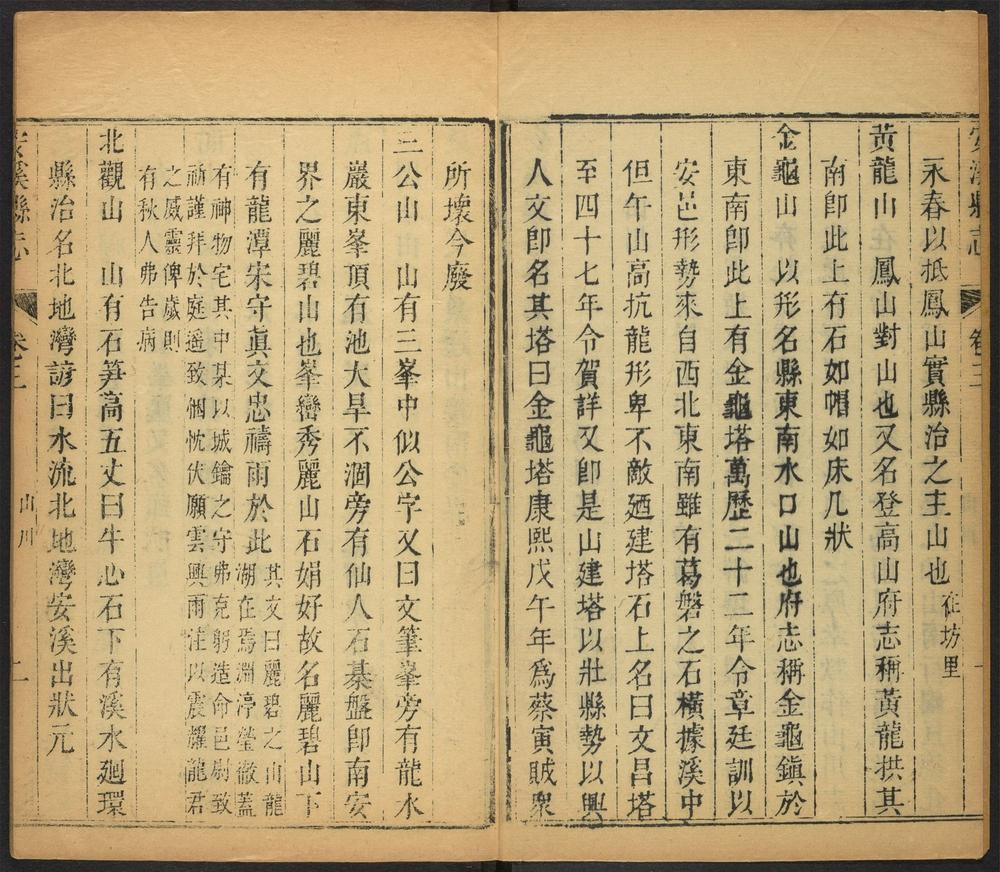 安溪縣志 卷三 一
永春以抵鳳山實縣治之主山也在坊里
黃龍山 鳳山對山也又名登高山府志稱黃龍拱其
南卽此上有石如帽如床几狀
金龜山 以形名縣東南水口山也府志稱金龜鎮於
東南卽此上有金龜塔萬歷二十二年令章廷訓以
安邑形勢來自西北東南雖有葛磐之石橫據溪中
但午山高抗龍形卑不敵廼建塔石上名曰文昌塔
至四十七年令賀詳又卽是山建塔以壯縣勢以興
人文卽名其塔曰金龜塔康熙戊午年爲蔡寅賊衆
所壞今廢
三公山 山有三峯中似公字又曰文筆峯旁有龍水
巖東峯頂有池大旱不涸旁有仙人石棊盤卽南安
界之麗碧山也峯巒秀麗山石娟好故名麗碧山下
有龍潭宋守眞文忠禱雨於此其文曰麗碧之山龍
湫在焉淵渟瑩徹蓋
有神物宅其中某以城鑰之守弗克躬造命邑尉致
祠謹拜於庭遥致悃忱伏願雲興雨注以震耀龍君
之威靈俾歲則
有秋人弗告病
北觀山 山有石笋高五丈曰牛心石下有溪水廻環
縣治名北地灣諺曰水流北地灣安溪出狀元
安溪縣志 卷之三 山川 二